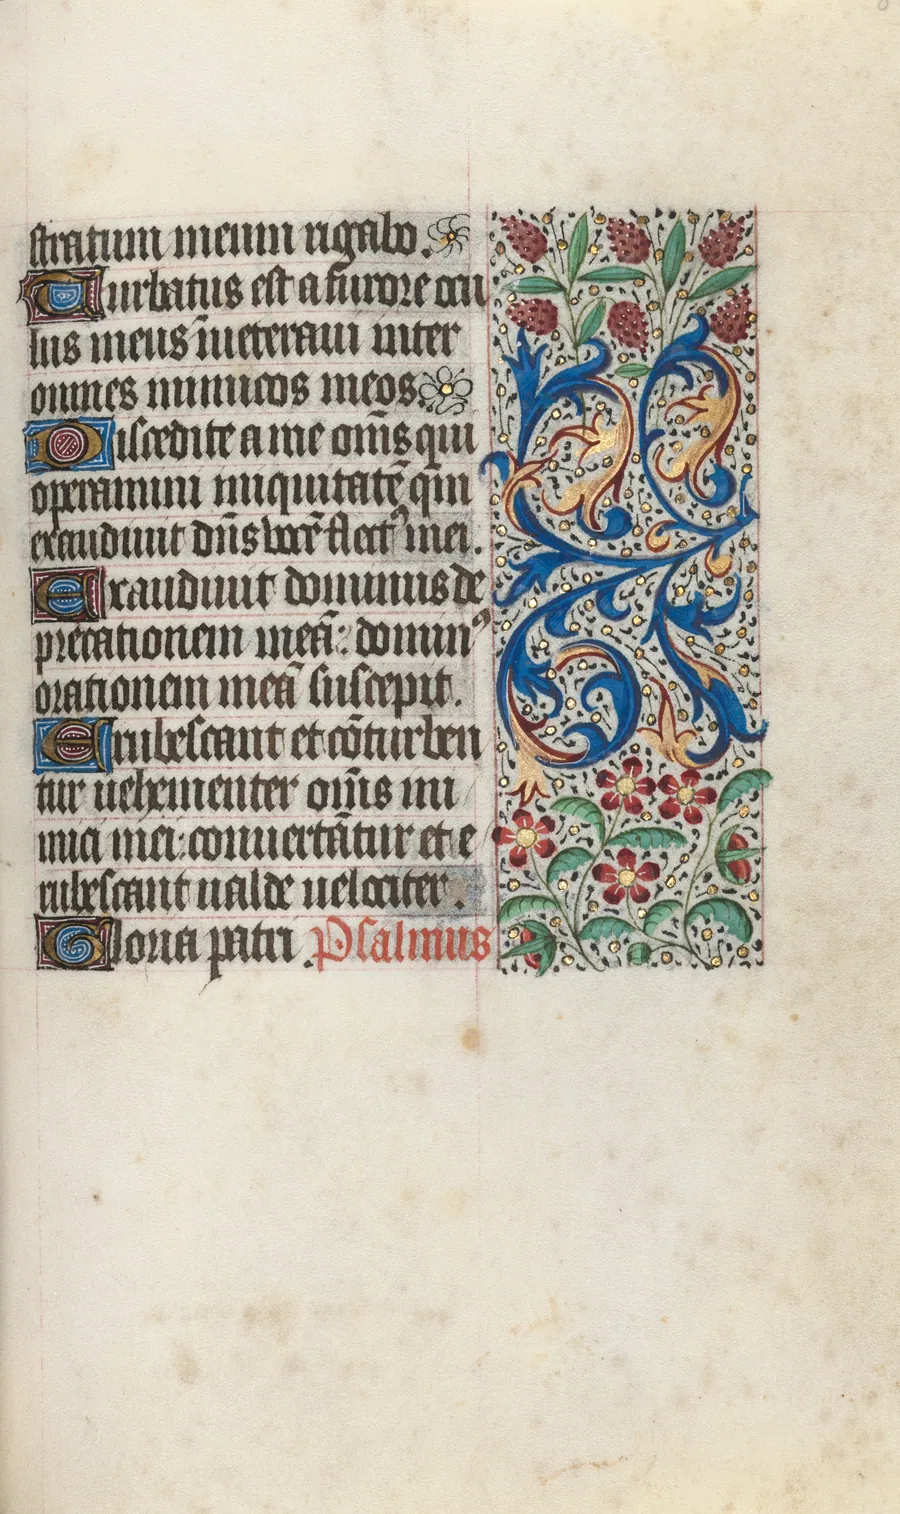 stratum meum rigabo.
Turbatus est a furore ocu
lus meus īueteraui inter
omnes inimicos meos.
Discedite a me om̄s qui
operamini iniquitatē qm̄
exaudiuit dn̄s vocē flet⁹ mei.
Exaudiuit dominus de
precationem meā: domin⁹
orationem meā suscepit.
Erubescant et cōturben
tur uehementer om̄s ini
mici mei: conuertātur et e
rubescant ualde uelociter.
Gloria patri. Psalmus